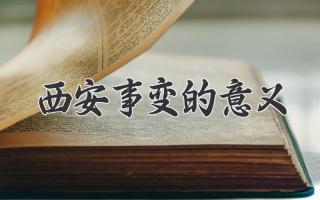 西安事变的意义